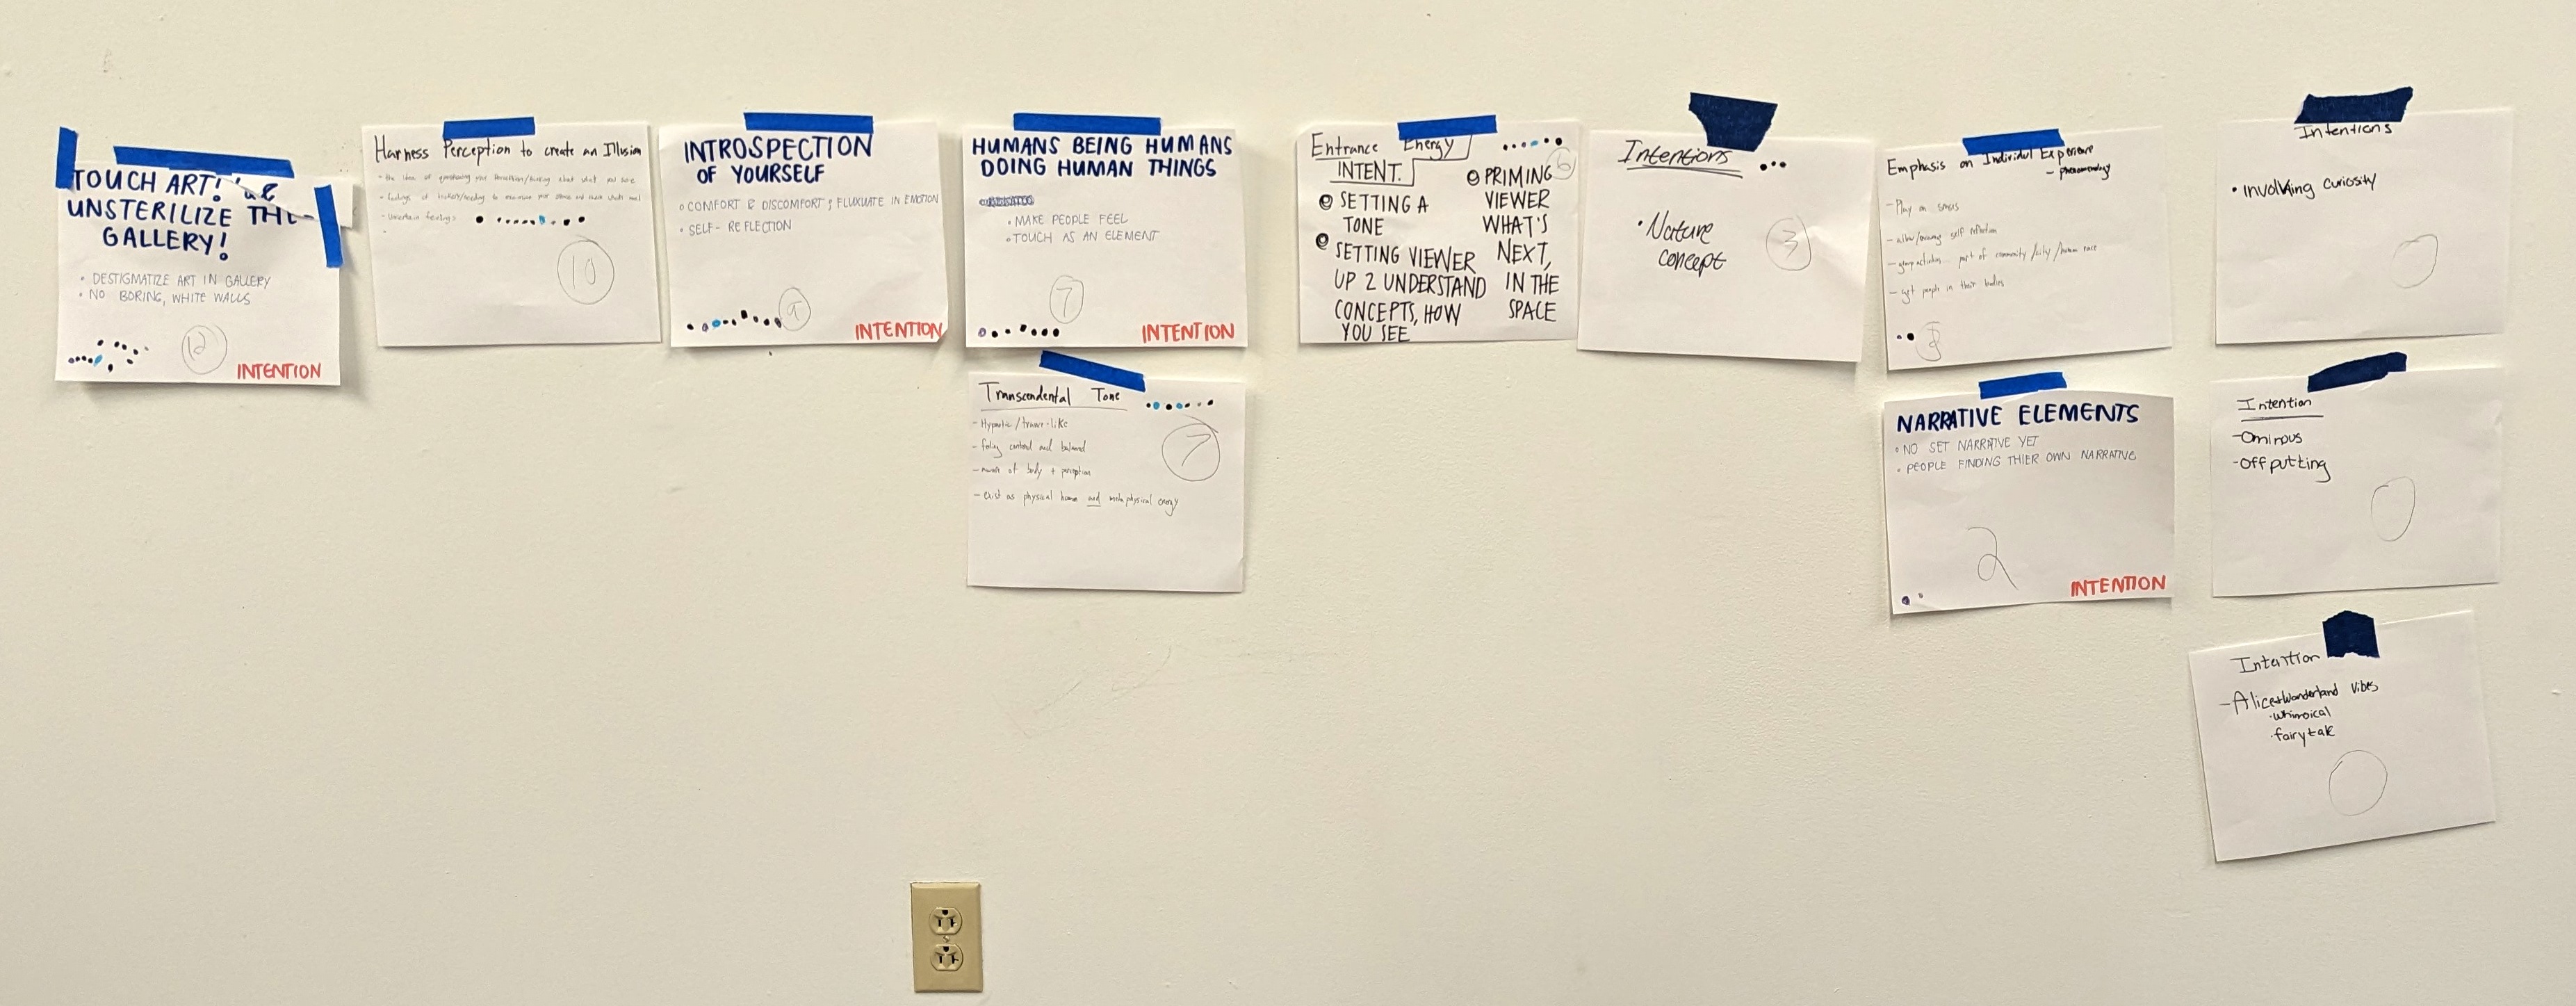 TOUCH ART! WE
UNSTERILIZE THE
GALLERY!
• DESTIGMATIZE ART IN GALLERY
• NO BORING, WHITE WALLS
12
INTENTION
Harness Perception to create an Illusion
- the idea of questioning your
- feelings of
- Uncertain feelings
10
INTROSPECTION
OF YOURSELF
• COMFORT & DISCOMFORT; FLUXUATE IN EMOTION
• SELF-REFLECTION
9
INTENTION
HUMANS BEING HUMANS
DOING HUMAN THINGS
• MAKE PEOPLE FEEL
• TOUCH AS AN ELEMENT
7
INTENTION
Transcendental Tone
- Hypnotic/trance-like
- feeling centered and balanced
- aware of body + perception
- exist as physical home and metaphysical energy
7
Entrance Energy
INTENT.
SETTING A
TONE
SETTING VIEWER
UP 2 UNDERSTAND
CONCEPTS, HOW
YOU SEE
6
PRIMING
VIEWER
WHAT'S
NEXT,
IN THE
SPACE
Intentions
• Nature
concept
3
Emphasis on Individual Experience
- phenomenology
- Play on senses
- allow/encourage self reflection
- group activities... part of community/city/human race
- get people in their bodies
NARRATIVE ELEMENTS
• NO SET NARRATIVE YET
• PEOPLE FINDING THIER OWN NARRATIVE
2
INTENTION
Intentions
• involving curiosity
0
Intention
- Ominous
- Off putting
0
Intention
- Alice+Wonderland vibes
• whimsical
• fairytale
0